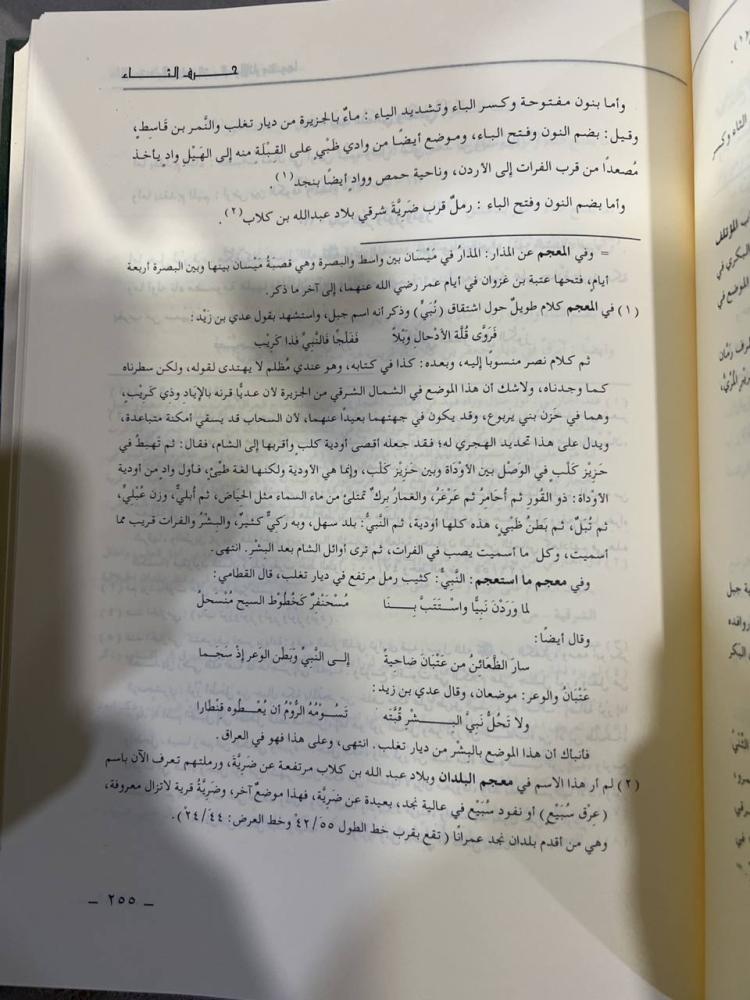 حــرف الثــاء
وأما بنون مفتوحة وكسر الباء وتشديد الياء : ماءٌ بالجزيرة من ديار تغلب والنَّمر بن قَاسِطٍ،
وقيل : بضم النون وفتح الباء، وموضع أيضًا من وادي ظَبْيٍ على القِبْلَةِ منه إلى الهَيْلِ وادٍ يأخذ
مُصعدًا من قرب الفرات إلى الأردن، وناحية حمص ووادٍ أيضًا بنجد(١).
وأما بضم النون وفتح الباء : رملٌ قرب ضَرِيَّةَ شرقي بلاد عبدالله بن كلاب(٢).
= وفي المعجم عن المذار: المذارُ في مَيْسَان بين واسط والبصرة وهي قصبَةُ مَيْسان بينها وبين البصرة أربعة
أيام، فتحها عتبة بن غزوان في أيام عمر رضي الله عنهما، إلى آخر ما ذكر.
(١) في المعجم كلام طويلٌ حول اشتقاق (نُبَيٍّ) وذكر أنه اسم جبل، واستشهد بقول عدي بن زَيد :
فَرَوَّى قُلَّةَ الأدْحالِ وَبْلًا فَفَلْجًا فَالنَّبيَّ فَذا كَرِيْبِ
ثم كلام نصر منسوبًا إليه، وبعده : كذا في كتابه، وهو عندي مُظلم لا يهتدى لقوله، ولكن سطرناه
كما وجدناه، ولاشك أن هذا الموضع في الشمال الشرقي من الجزيرة لأن عديًّا قرنه بالإيَاد وذي كَرِيْبٍ،
وهما في حَزن بني يربوع، وقد يكون في جهتهما بعيدًا عنهما، لأن السحاب قد يسقي أمكنة متباعدة،
ويدل على هذا تحديد الهجري له؛ فقد جعله أقصى أودية كلب وأقربها إلى الشام، فقال : ثم تَهبِطُ في
حَزِيْزِ كَلْبٍ في الوَصْلِ بين الأوْدَاة وبين حَزِيْزِ كَلْبٍ، وإنما هي الأودية ولكنها لغة طيئ، فأول وادٍ من أودية
الأوْدَاة : ذو القُورِ ثم أُحَامِرُ ثم عَرْعَرُ، والغِمَارُ بركٌ تمتلئ من ماء السماء مثل الحِيَاض، ثم أُبليُّ، وزن عُبْليٍّ،
ثم تُبَلٌ، ثم بَطنُ ظَبْيٍ، هذه كلها أودية، ثم النَّبيُّ : بلد سهل، وبه ركيٌّ كثيرٌ، والبِشْرُ والفرات قريب مما
أسميت، وكل ما أسميت يصب في الفرات، ثم ترى أوائل الشام بعد البِشْرِ. انتهى.
وفي معجم ما استعجم : النَّبيُّ : كثيب رمل مرتفع في ديار تغلب، قال القطامي :
لما وَرَدْنَ نَبيًّا واسْتَتَبَّ بِـنـا مُسْحَنْفِرٌ كَخُطُوْطِ السيح مُنْسَحلُ
وقال أيضًا :
سارَ الظَّعَائِنُ من عَتْبَانَ ضاحيةً إلى النَّبيِّ وبَطنِ الوَعرِ إذْ سَجَما
عَتْبَانُ والوعر : موضعان، وقال عدي بن زيد :
ولا تَحُلُّ نَبيَّ البِــشْرِ قُبَّتَه تَسُومُهُ الرُّوْمُ أن يُعْطُوه قِنْطارا
فأنباك أن هذا الموضع بالبِشْرِ من ديار تغلب. انتهى، وعلى هذا فهو في العراق.
(٢) لم أر هذا الاسم في معجم البلدان وبلاد عبد الله بن كلاب مرتفعة عن ضَرِيَّة، ورملتهم تعرف الآن باسم
(عِرْق سُبَيْع) أو نفود سُبَيْع في عالية نجد، بعيدة عن ضَرِيَّة، فهذا موضعٌ آخر، وضَرِيَّةُ قرية لاتزال معروفة،
وهي من أقدم بلدان نجد عمرانًا ( تقع بقرب خط الطول ٤٢/٥٥ وخط العرض : ٢٤/٤٤).
— ٢٥٥ —